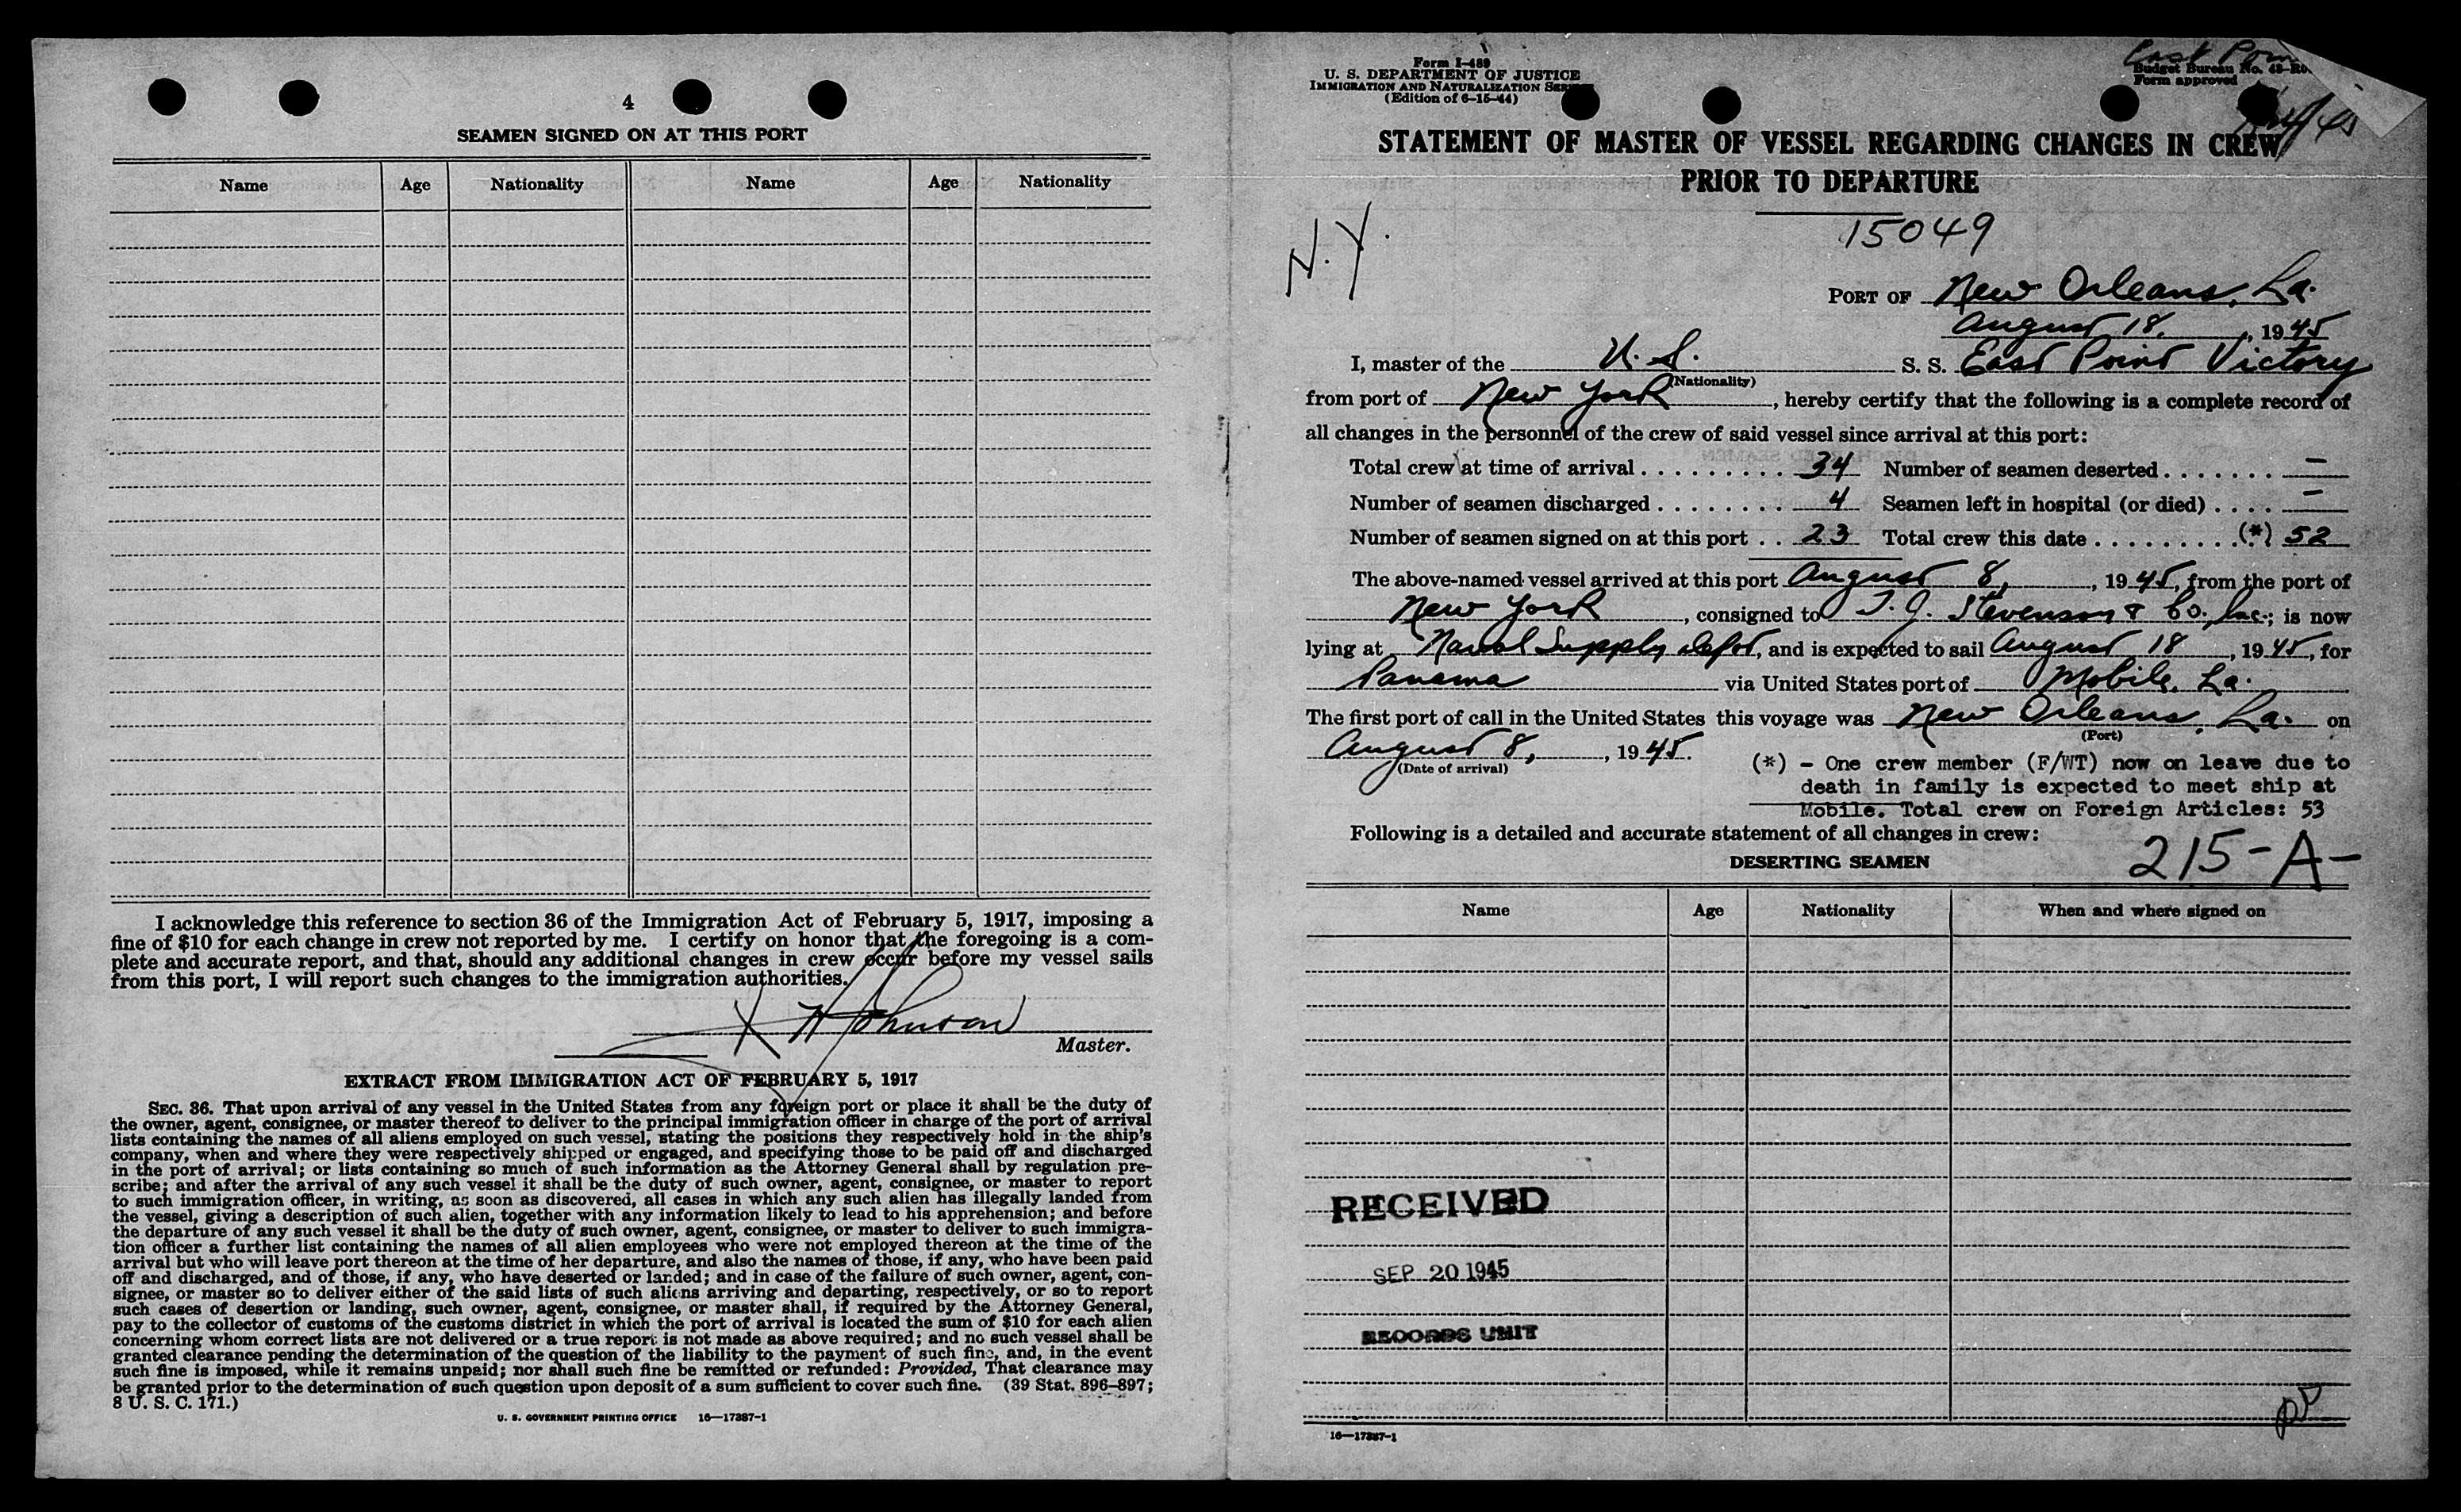 4
SEAMEN SIGNED ON AT THIS PORT
Name Age Nationality Name Age Nationality
I acknowledge this reference to section 36 of the Immigration Act of February 5, 1917, imposing a
fine of $10 for each change in crew not reported by me. I certify on honor that the foregoing is a com-
plete and accurate report, and that, should any additional changes in crew occur before my vessel sails
from this port, I will report such changes to the immigration authorities.
X H Johnson
Master.
EXTRACT FROM IMMIGRATION ACT OF FEBRUARY 5, 1917
SEC. 36. That upon arrival of any vessel in the United States from any foreign port or place it shall be the duty of
the owner, agent, consignee, or master thereof to deliver to the principal immigration officer in charge of the port of arrival
lists containing the names of all aliens employed on such vessel, stating the positions they respectively hold in the ship's
company, when and where they were respectively shipped or engaged, and specifying those to be paid off and discharged
in the port of arrival; or lists containing so much of such information as the Attorney General shall by regulation pre-
scribe; and after the arrival of any such vessel it shall be the duty of such owner, agent, consignee, or master to report
to such immigration officer, in writing, as soon as discovered, all cases in which any such alien has illegally landed from
the vessel, giving a description of such alien, together with any information likely to lead to his apprehension; and before
the departure of any such vessel it shall be the duty of such owner, agent, consignee, or master to deliver to such immigra-
tion officer a further list containing the names of all alien employees who were not employed thereon at the time of the
arrival but who will leave port thereon at the time of her departure, and also the names of those, if any, who have been paid
off and discharged, and of those, if any, who have deserted or landed; and in case of the failure of such owner, agent, con-
signee, or master so to deliver either of the said lists of such aliens arriving and departing, respectively, or so to report
such cases of desertion or landing, such owner, agent, consignee, or master shall, if required by the Attorney General,
pay to the collector of customs of the customs district in which the port of arrival is located the sum of $10 for each alien
concerning whom correct lists are not delivered or a true report is not made as above required; and no such vessel shall be
granted clearance pending the determination of the question of the liability to the payment of such fine, and, in the event
such fine is imposed, while it remains unpaid; nor shall such fine be remitted or refunded: Provided, That clearance may
be granted prior to the determination of such question upon deposit of a sum sufficient to cover such fine. (39 Stat. 896–897;
8 U. S. C. 171.)
U. S. GOVERNMENT PRINTING OFFICE 16—17387-1
Form I-489
U. S. DEPARTMENT OF JUSTICE
IMMIGRATION AND NATURALIZATION SER
(Edition of 6-15-44)
East Poin
Budget Bureau No. 43-R0
Form approved
STATEMENT OF MASTER OF VESSEL REGARDING CHANGES IN CREW
PRIOR TO DEPARTURE
15049
N.Y.
PORT OF New Orleans, La.
August 18, , 1945
I, master of the U. S. S. S. East Point Victory
(Nationality)
from port of New York , hereby certify that the following is a complete record of
all changes in the personnel of the crew of said vessel since arrival at this port:
Total crew at time of arrival . . . . . . . . . . 34 Number of seamen deserted . . . . . . . –
Number of seamen discharged . . . . . . . . 4 Seamen left in hospital (or died) . . . . –
Number of seamen signed on at this port . . 23 Total crew this date . . . . . . . . . . (*) 52
The above-named vessel arrived at this port August 8, , 1945, from the port of
New York , consigned to T. J. Stevenson & Co. Inc.; is now
lying at Naval Supply Depot, and is expected to sail August 18 , 1945, for
Panama via United States port of Mobile, La.
The first port of call in the United States this voyage was New Orleans, La. on
(Port)
August 8, , 1945.
(Date of arrival)
(*) - One crew member (F/WT) now on leave due to
death in family is expected to meet ship at
Mobile. Total crew on Foreign Articles: 53
Following is a detailed and accurate statement of all changes in crew:
215-A-
DESERTING SEAMEN
Name Age Nationality When and where signed on
RECEIVED
SEP 20 1945
RECORDS UNIT
16—17387-1